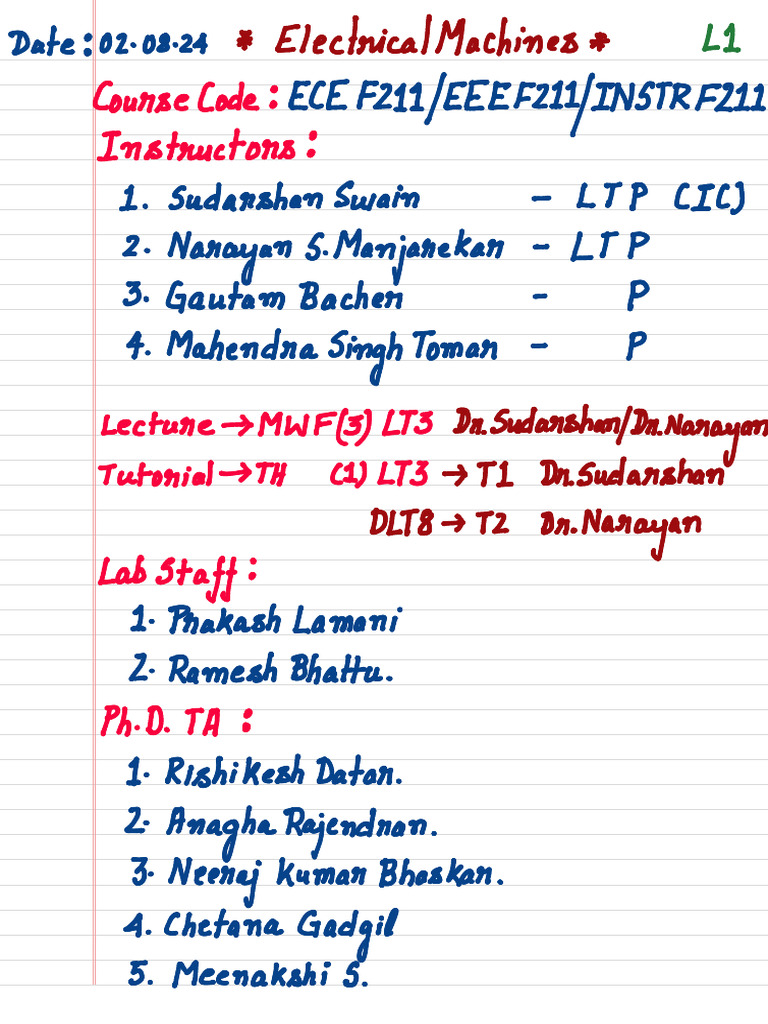 Date: 02.08.24 * Electrical Machines * L1
Course Code: ECE F211/EEE F211/INSTR F211
Instructors:
1. Sudarshan Swain - L T P (IC)
2. Narayan S. Manjarekar - L T P
3. Gautam Bacher - P
4. Mahendra Singh Tomar - P
Lecture → MWF(3) LT3 Dr. Sudarshan/Dr. Narayan
Tutorial → TH (1) LT3 → T1 Dr. Sudarshan
DLT8 → T2 Dr. Narayan
Lab Staff:
1. Prakash Lamani
2. Ramesh Bhattu.
Ph.D. TA :
1. Rishikesh Datar.
2. Anagha Rajendran.
3. Neeraj Kumar Bhaskar.
4. Chetana Gadgil
5. Meenakshi S.